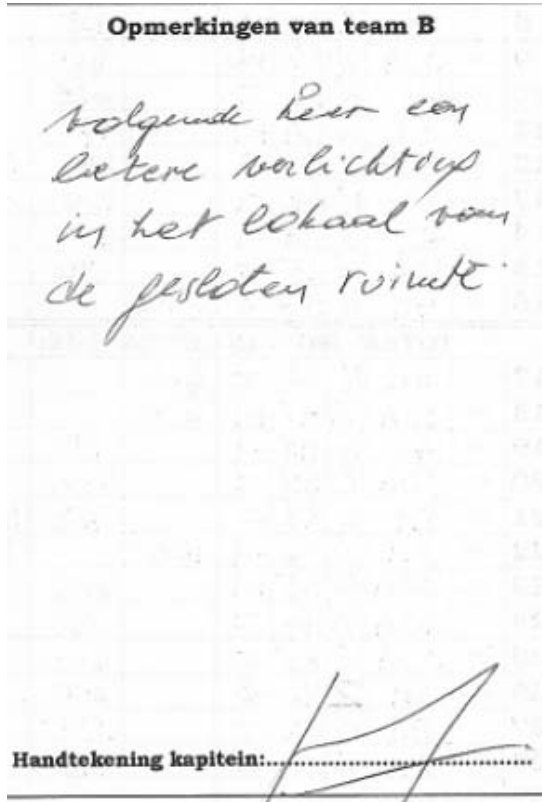 Opmerkingen van team B
volgende keer een
betere verlichting
in het lokaal van
de gesloten ruimte.
Handtekening kapitein: